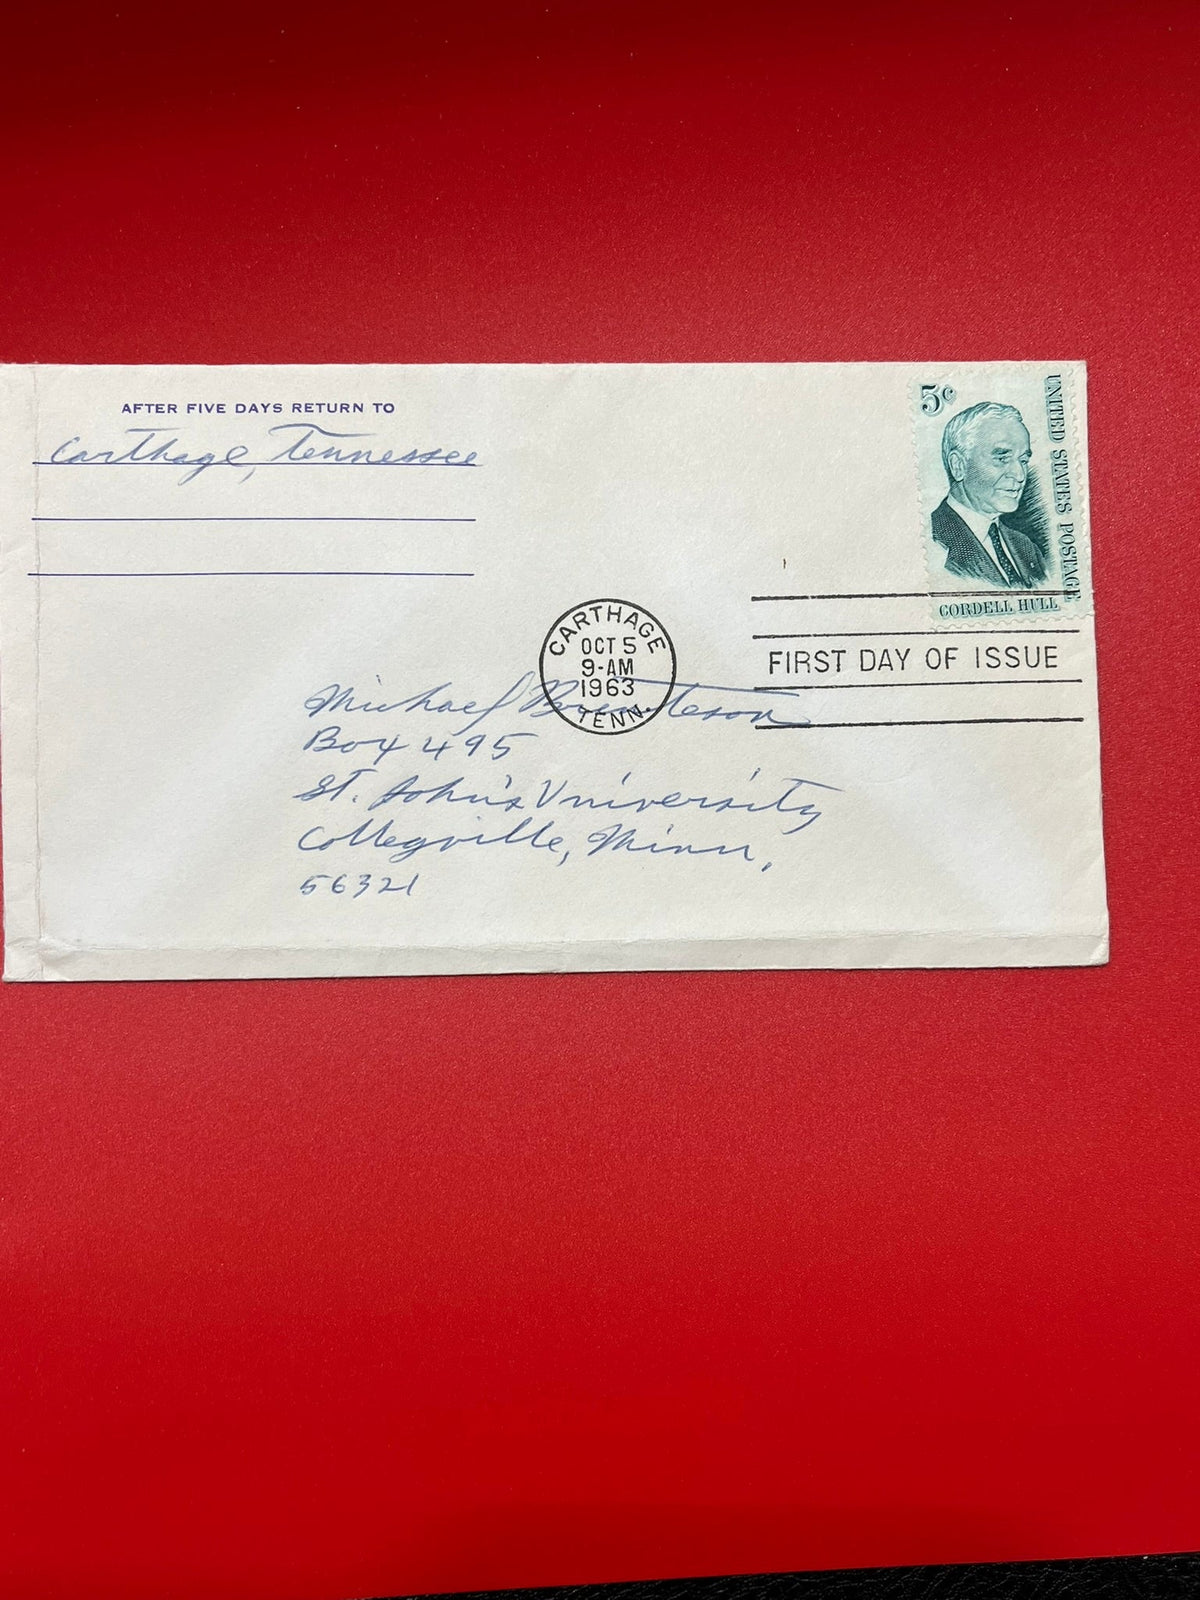 AFTER FIVE DAYS RETURN TO
Carthage, Tennessee
5c
UNITED STATES POSTAGE
CORDELL HULL
CARTHAGE
OCT 5
9-AM
1963
TENN.
FIRST DAY OF ISSUE
Michael
Box 495
St. John's University
Collegville, Minn,
56321